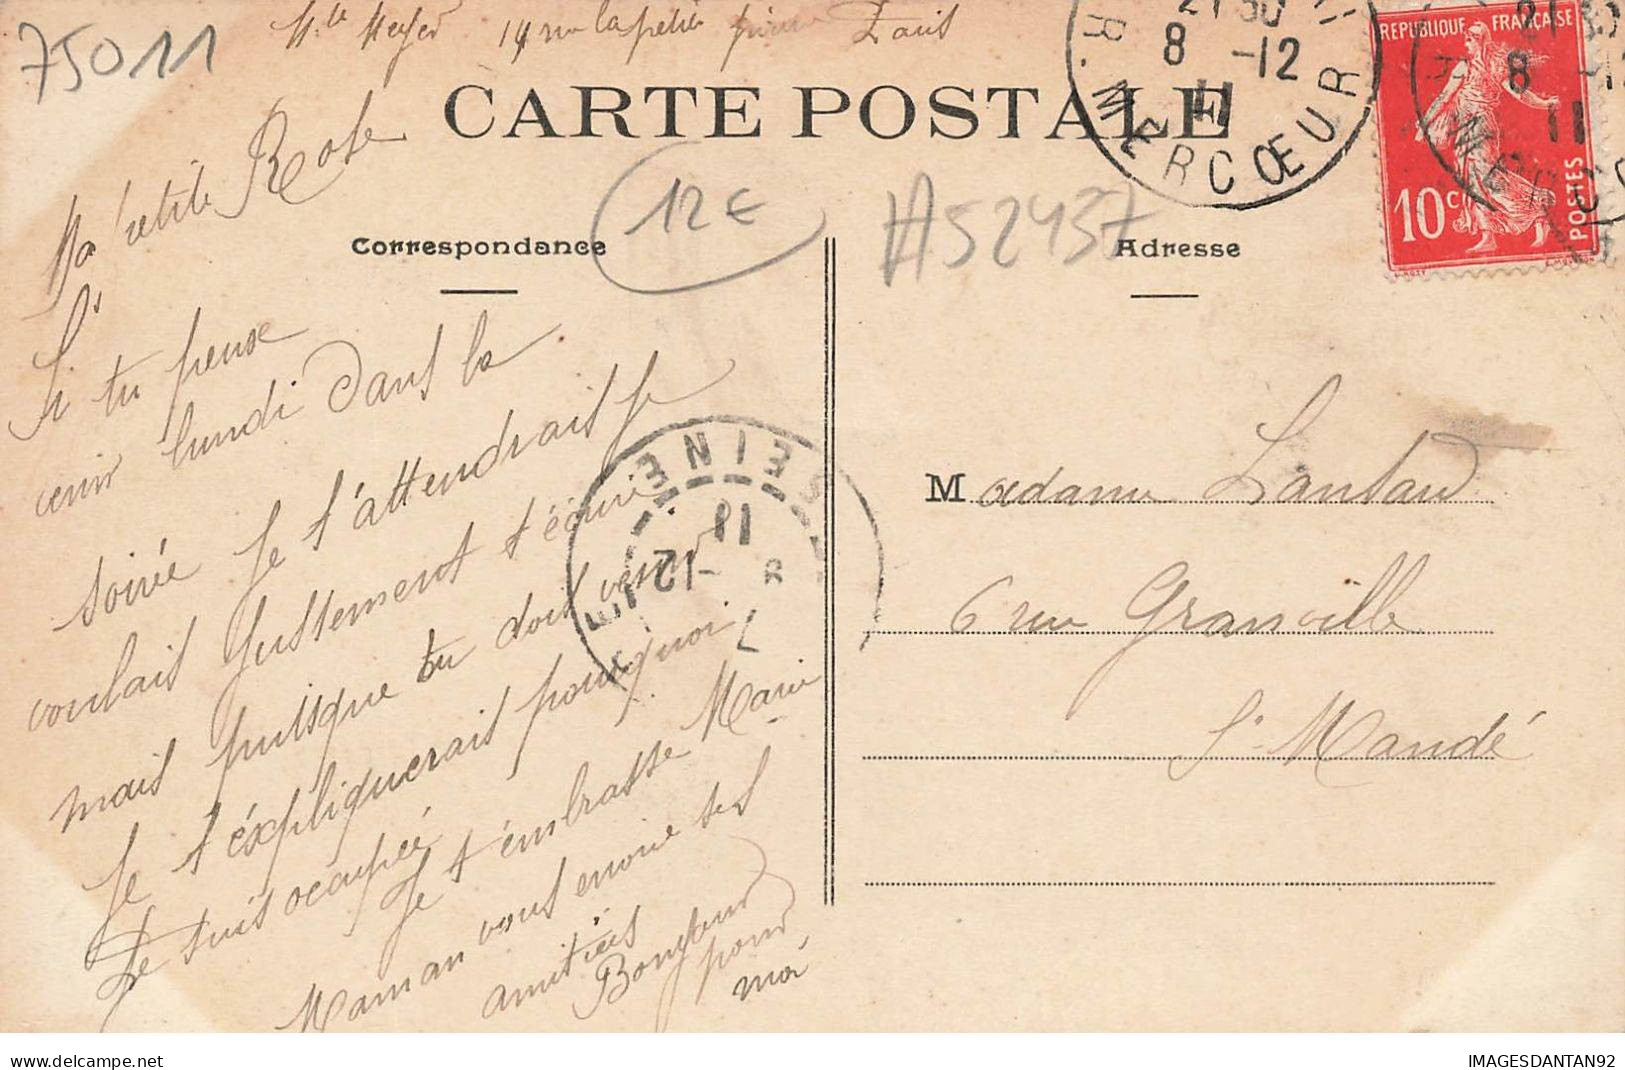 75011
Mlle Meyer 14 rue la petite pierre Paris
CARTE POSTALE
21 30
8 -12
11
R. MERCŒUR
REPUBLIQUE FRANÇAISE
10c
POSTES
12€
AS2437
Correspondance
Adresse
Ma petite Rose
Si tu peux
venir lundi dans la
soirée je t'attendrais je
voulais justement t'écrire
mais puisque tu doit venir
Je t'expliquerais pourquoi
Je suis occupée
Je t'embrasse Marie
Maman vous envoie ses
amitiés
Bonjour
pour
moi
SEINE
8 -12
11
Madame Lansard
6 rue Granville
St Mandé
delcampe.net
IMAGESDANTAN92